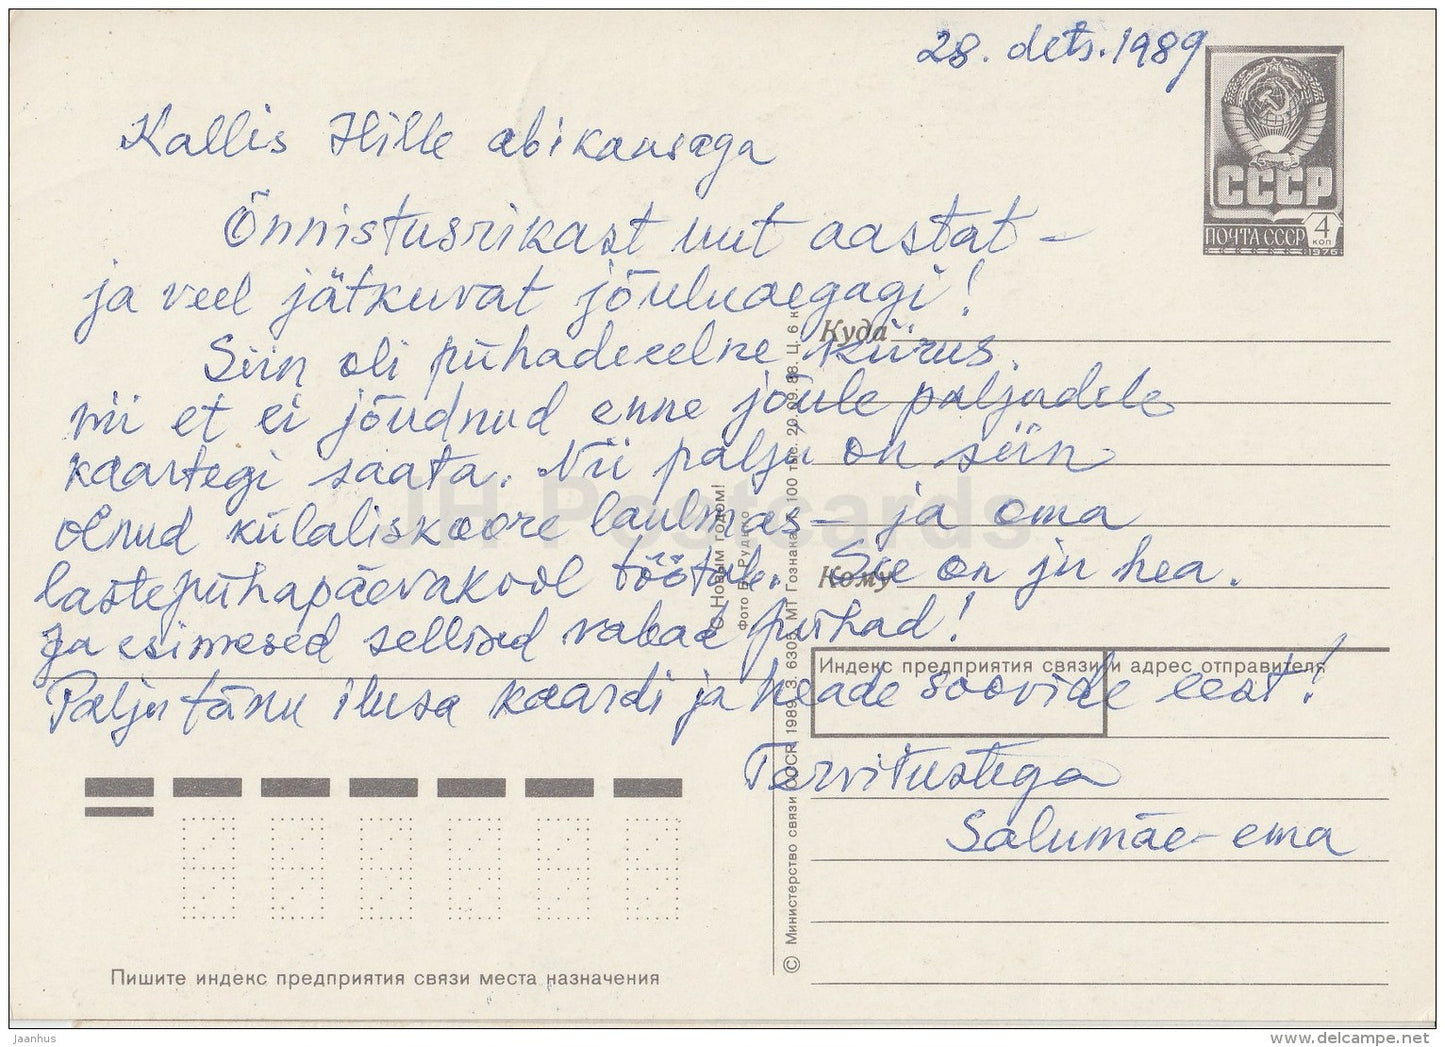 28. dets. 1989
Kallis Hille abikaasaga
Õnnistusrikast uut aastat –
ja veel jätkuvat jõuluaegagi!
Siin oli pühadeeelne kiirus
nii et ei jõudnud enne jõule paljudele
kaartegi saata. Nii palju on siin
olnud külaliskoore laulmas – ja oma
lastepühapäevakool töötab. See on ju hea.
Ja esimesed sellised vabad pühad!
Palju tänu ilusa kaardi ja heade soovide eest!
Tervitustega
Salumäe-ema
СССР
ПОЧТА СССР
4
КОП
1976
Куда
Кому
Индекс предприятия связи и адрес отправителя
С Новым годом!
Фото Б. Рудько
© Министерство связи СССР, 1989. З. 6305. МТ Гознака. 100 тыс. 20.09.88. Ц. 6 к.
Пишите индекс предприятия связи места назначения
JH Postcards
jaanhus
www.delcampe.net